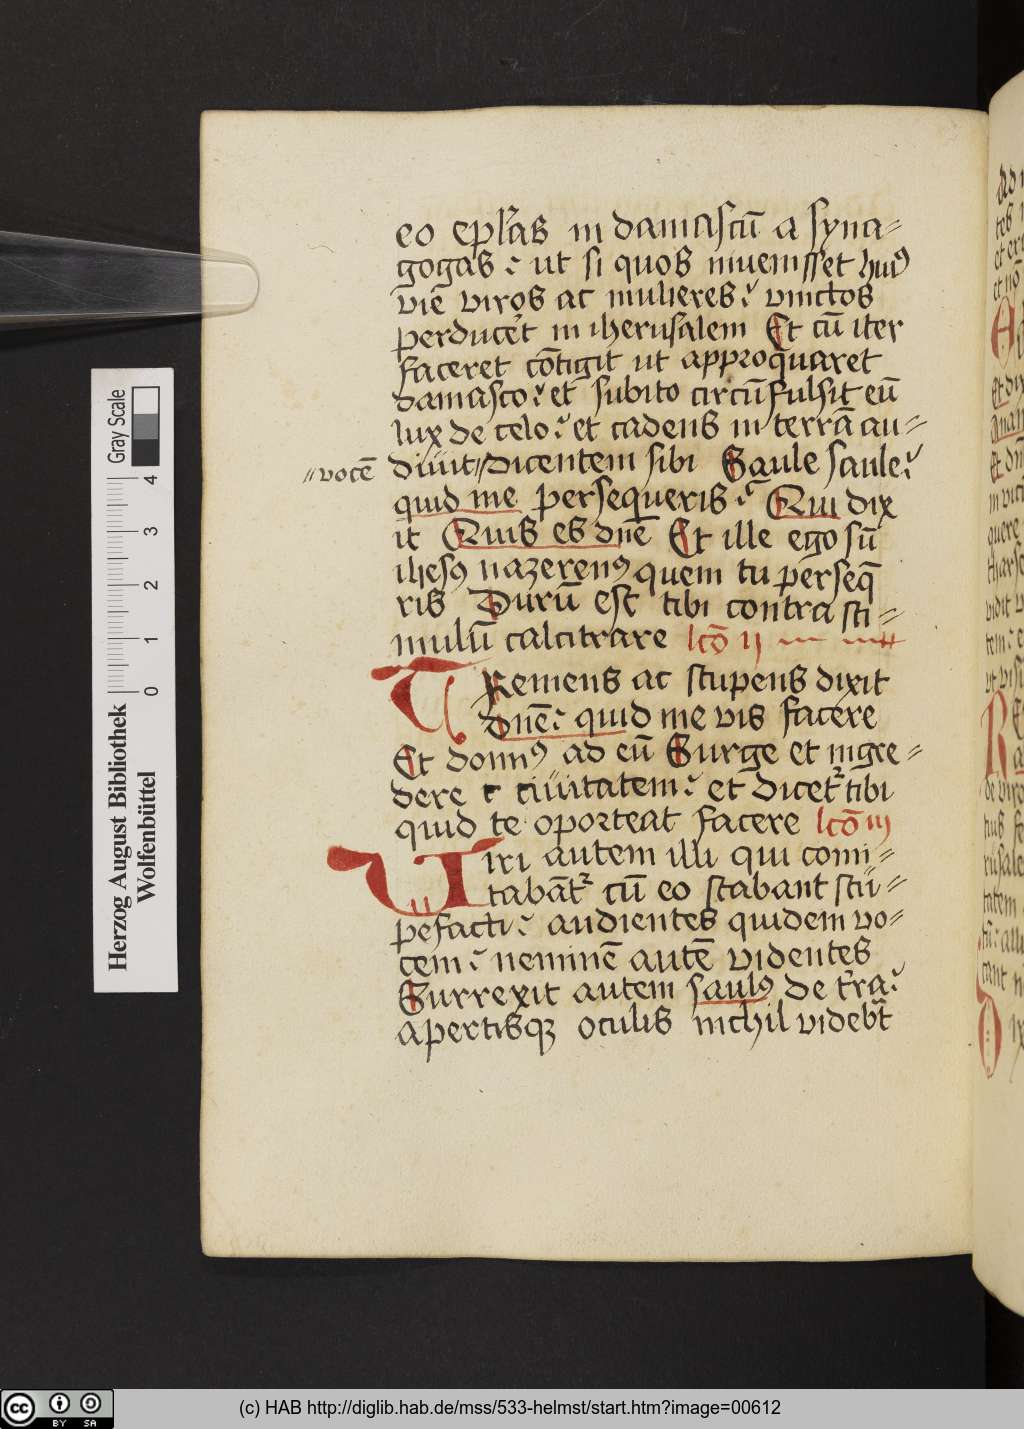 eo epl̃as in damascū a syna=
gogas : ut si quos inuenisset huiꝰ
vie viros ac mulieres : vinctos
perducer̃t in iherusalem Et cū iter
faceret cōtigit ut appropq̄uaret
damasco : et subito circūfulsit eū
lux de celo : et cadens in terrā au=
diuit // dicentem sibi Saule saule :
// vocē
quid me persequeris : Qui dix
it Quis es dn̄e Et ille ego sū
ihesꝰ nazerenꝰ quem tu perseq̄
ris Durū est tibi contra sti=
mulū calcitrare lcō ij
Tremens ac stupens dixit
dn̄e : quid me vis facere
Et dominꝰ ad eū Surge et ingre=
dere ciuitatem : et dicet᷑ tibi
quid te oporteat facere lcō iij
Uiri autem illi qui comi=
tabāt᷑ cū eo stabant stu=
pefacti : audientes quidem vo=
cem : neminē autē videntes
Surrexit autem saulꝰ de t̃ra :
apertisqꝫ oculis nichil videb̃t
Gray Scale
4
3
2
1
0
Herzog August Bibliothek
Wolfenbüttel
cc BY SA
(c) HAB http://diglib.hab.de/mss/533-helmst/start.htm?image=00612